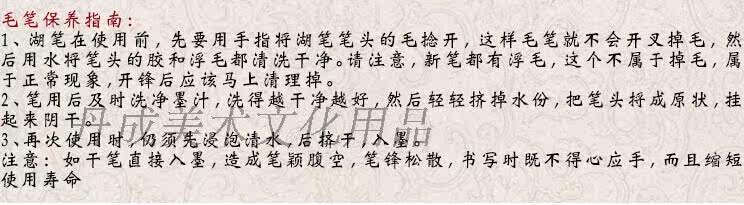 毛笔保养指南：
1、湖笔在使用前，先要用手指将湖笔笔头的毛捻开，这样毛笔就不会开叉掉毛，然
后用水将笔头的胶和浮毛都清洗干净。请注意，新笔都有浮毛，这个不属于掉毛，属
于正常现象，开锋后应该马上清理掉。
2、笔用后及时洗净墨汁，洗得越干净越好，然后轻轻挤掉水份，把笔头将成原状，挂
起来阴干。
丹成美术文化用品
3、再次使用时，仍须先浸泡清水，后挤干，入墨。
注意：如干笔直接入墨，造成笔颖腹空，笔锋松散，书写时既不得心应手，而且缩短
使用寿命